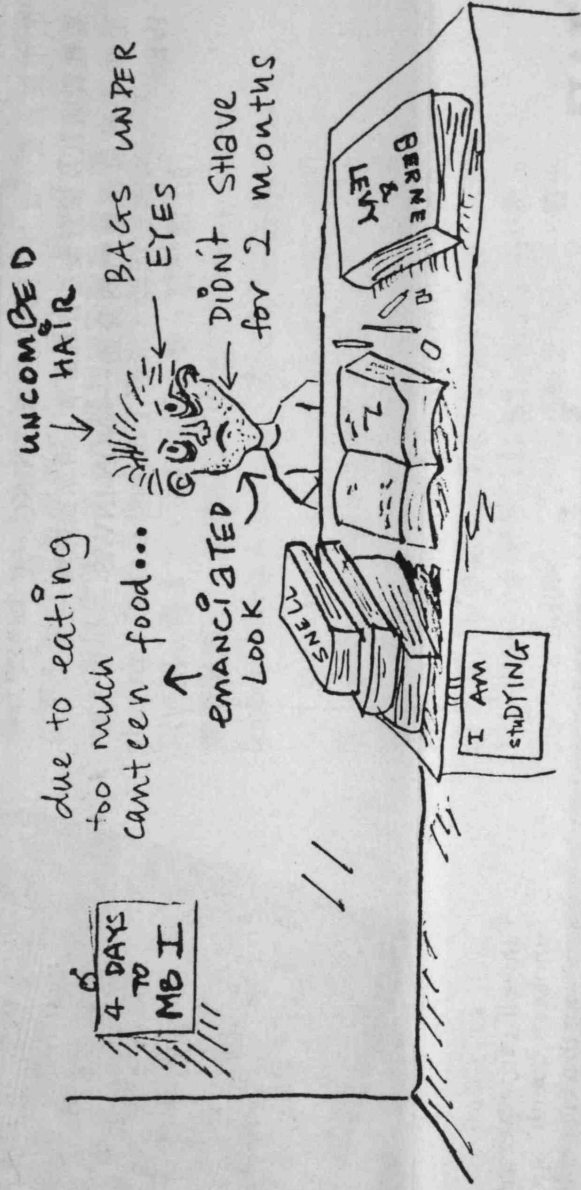 4 DAYS
TO
MB I
due to eating
too much
canteen food...
UNCOMBED
HAIR
BAGS UNDER
EYES
DIDN't SHAVE
for 2 months
EMANCIATED
LOOK
SNELL
BERNE
&
LEVY
I AM
stuDYING